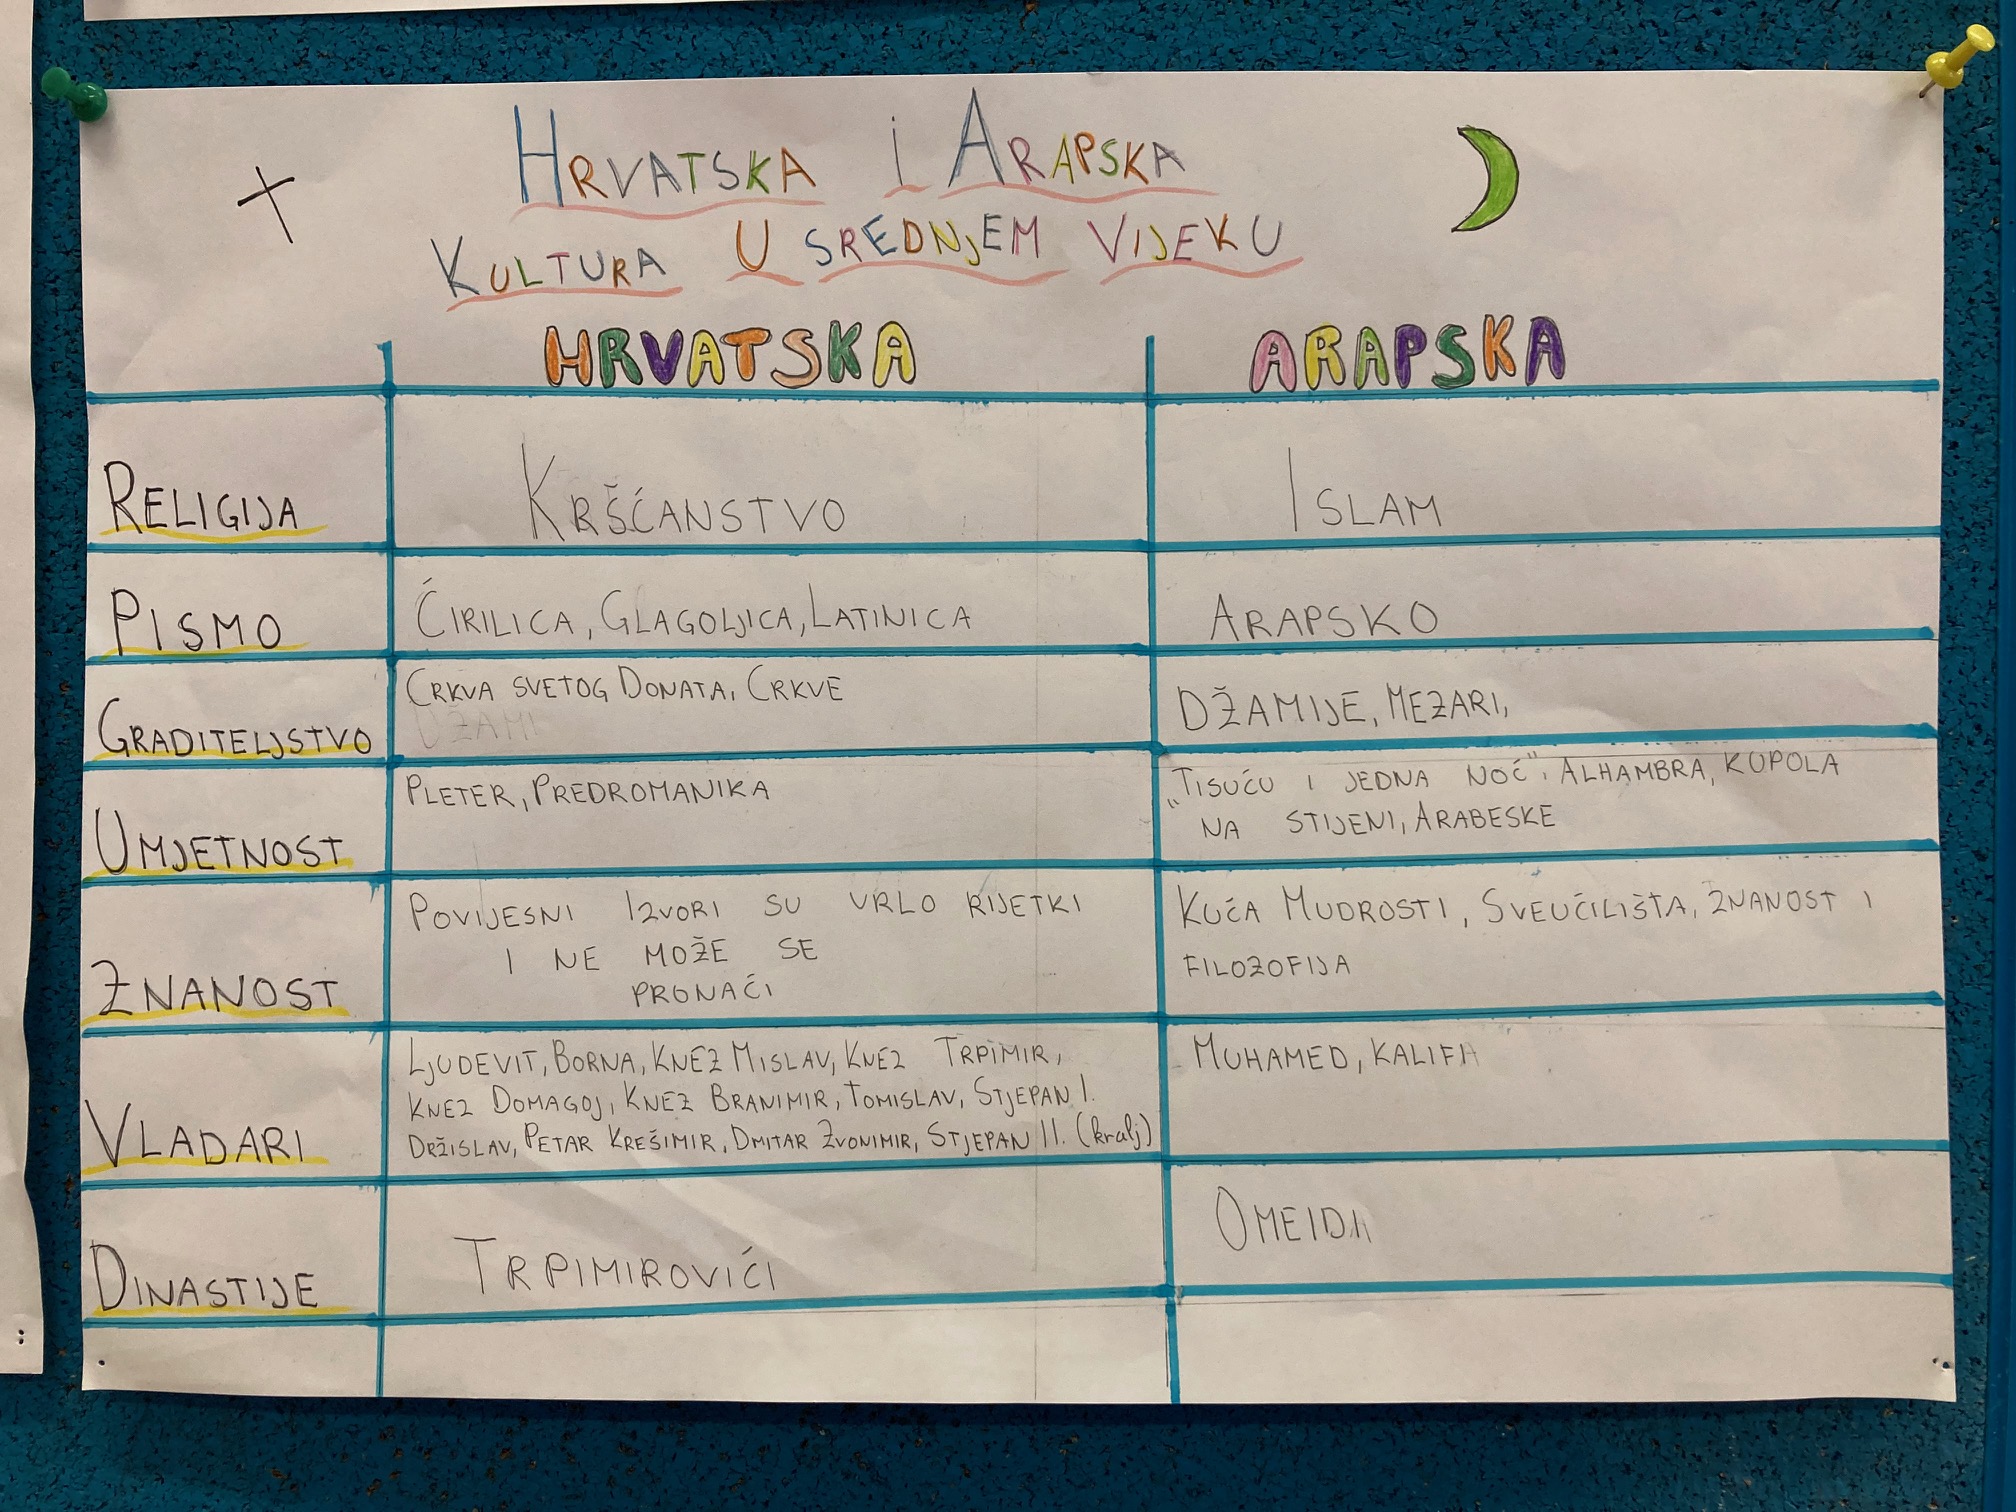 Hrvatska i Arapska
Kultura u srednjem vijeku
HRVATSKA ARAPSKA
Religija Kršćanstvo Islam
Pismo Ćirilica, Glagoljica, Latinica Arapsko
Graditeljstvo Crkva svetog Donata, Crkve Džamije, Mezari,
Džami
Umjetnost Pleter, Predromanika „Tisuću i jedna noć", Alhambra, Kupola
na stijeni, Arabeske
Znanost Povijesni izvori su vrlo rijetki Kuća Mudrosti, Sveučilišta, znanost i
i ne može se filozofija
pronaći
Vladari Ljudevit, Borna, Knez Mislav, Knez Trpimir, Muhamed, kalifi
Knez Domagoj, Knez Branimir, Tomislav, Stjepan I.
Držislav, Petar Krešimir, Dmitar Zvonimir, Stjepan II. (kralj)
Dinastije Trpimirovići Omeidi